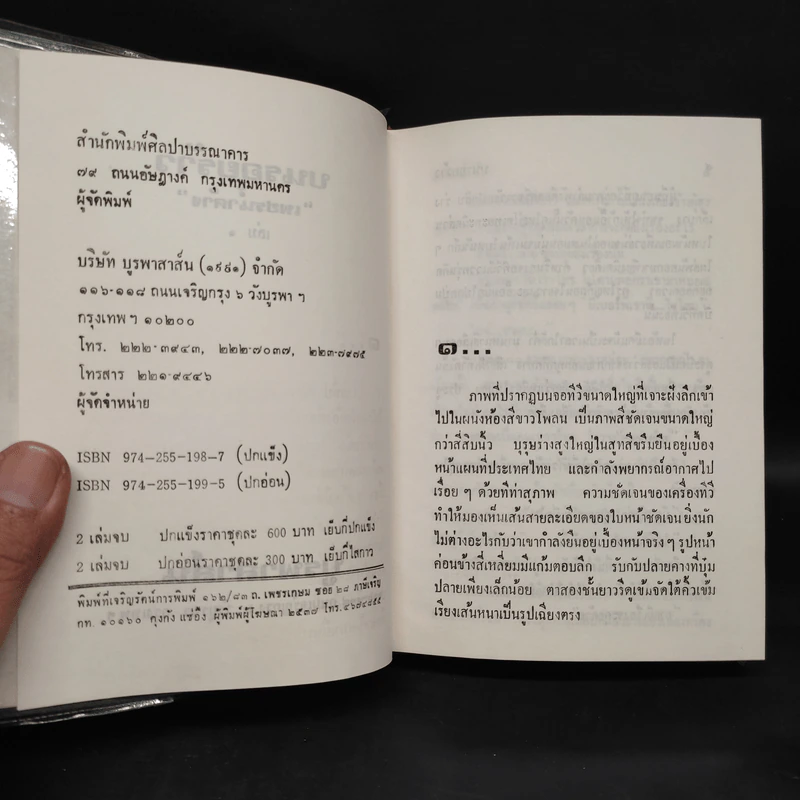 สำนักพิมพ์ศิลปาบรรณาคาร
๗๙ ถนนอัษฎางค์ กรุงเทพมหานคร
ผู้จัดพิมพ์
บริษัท บูรพาสาส์น (๑๙๙๑) จำกัด
๑๑๖-๑๑๘ ถนนเจริญกรุง ๖ วังบูรพา ฯ
กรุงเทพ ฯ ๑๐๒๐๐
โทร. ๒๒๒-๓๙๔๓, ๒๒๒-๗๐๓๗, ๒๒๓-๗๙๗๕
โทรสาร ๒๒๑-๙๔๔๖
ผู้จัดจำหน่าย
ISBN 974-255-198-7 (ปกแข็ง)
ISBN 974-255-199-5 (ปกอ่อน)
2 เล่มจบ ปกแข็งราคาชุดละ 600 บาท เย็บกี่ปกแข็ง
2 เล่มจบ ปกอ่อนราคาชุดละ 300 บาท เย็บกี่ไสกาว
พิมพ์ที่เจริญรัตน์การพิมพ์ ๑๖๒/๘๓ ถ. เพชรเกษม ซอย ๒๘ ภาษีเจริญ
กท. ๑๐๑๖๐ กุงกัง แซ่อึ้ง ผู้พิมพ์ผู้โฆษณา ๒๕๓๗ โทร.
๑...
ภาพที่ปรากฏบนจอทีวีขนาดใหญ่ที่เจาะฝังลึกเข้า
ไปในผนังห้องสีขาวโพลน เป็นภาพสีชัดเจนขนาดใหญ่
กว่าสี่สิบนิ้ว บุรุษร่างสูงใหญ่ในสูทสีขรึมยืนอยู่เบื้อง
หน้าแผนที่ประเทศไทย และกำลังพยากรณ์อากาศไป
เรื่อย ๆ ด้วยทีท่าสุภาพ ความชัดเจนของเครื่องทีวี
ทำให้มองเห็นเส้นสายละเอียดของใบหน้าชัดเจน ยิ่งนัก
ไม่ต่างอะไรกับว่าเขากำลังยืนอยู่เบื้องหน้าจริง ๆ รูปหน้า
ค่อนข้างสี่เหลี่ยมมีแก้มตอบลึก รับกับปลายคางที่บุ๋ม
ปลายเพียงเล็กน้อย ตาสองชั้นยาวรีดูเข้มจัดใต้คิ้วเข้ม
เรียงเส้นหนาเป็นรูปเฉียงตรง